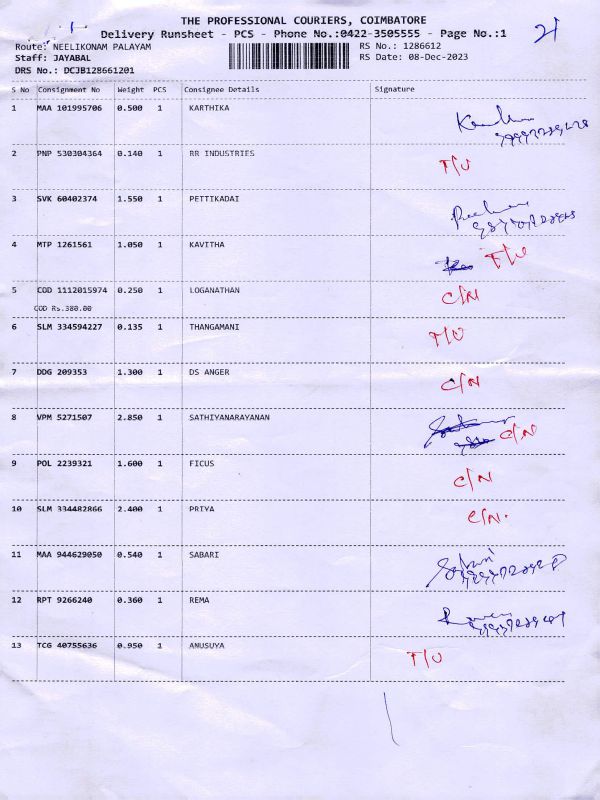 THE PROFESSIONAL COURIERS, COIMBATORE
Delivery Runsheet - PCS - Phone No.:0422-3505555 - Page No.:1
Route: NEELIKONAM PALAYAM RS No.: 1286612
Staff: JAYABAL RS Date: 08-Dec-2023
DRS No.: DCJB128661201
S No Consignment No Weight PCS Consignee Details Signature
1 MAA 101995706 0.500 1 KARTHIKA
2 PNP 530304364 0.140 1 RR INDUSTRIES T/U
3 SVK 60402374 1.550 1 PETTIKADAI
4 MTP 1261561 1.050 1 KAVITHA T/U
5 COD 1112015974 0.250 1 LOGANATHAN C/N
COD Rs.380.00
6 SLM 334594227 0.135 1 THANGAMANI T/U
7 DDG 209353 1.300 1 DS ANGER C/N
8 VPM 5271507 2.850 1 SATHIYANARAYANAN C/N
9 POL 2239321 1.600 1 FICUS C/N
10 SLM 334482866 2.400 1 PRIYA C/N.
11 MAA 944629050 0.540 1 SABARI
12 RPT 9266240 0.360 1 REMA
13 TCG 40755636 0.950 1 ANUSUYA T/U